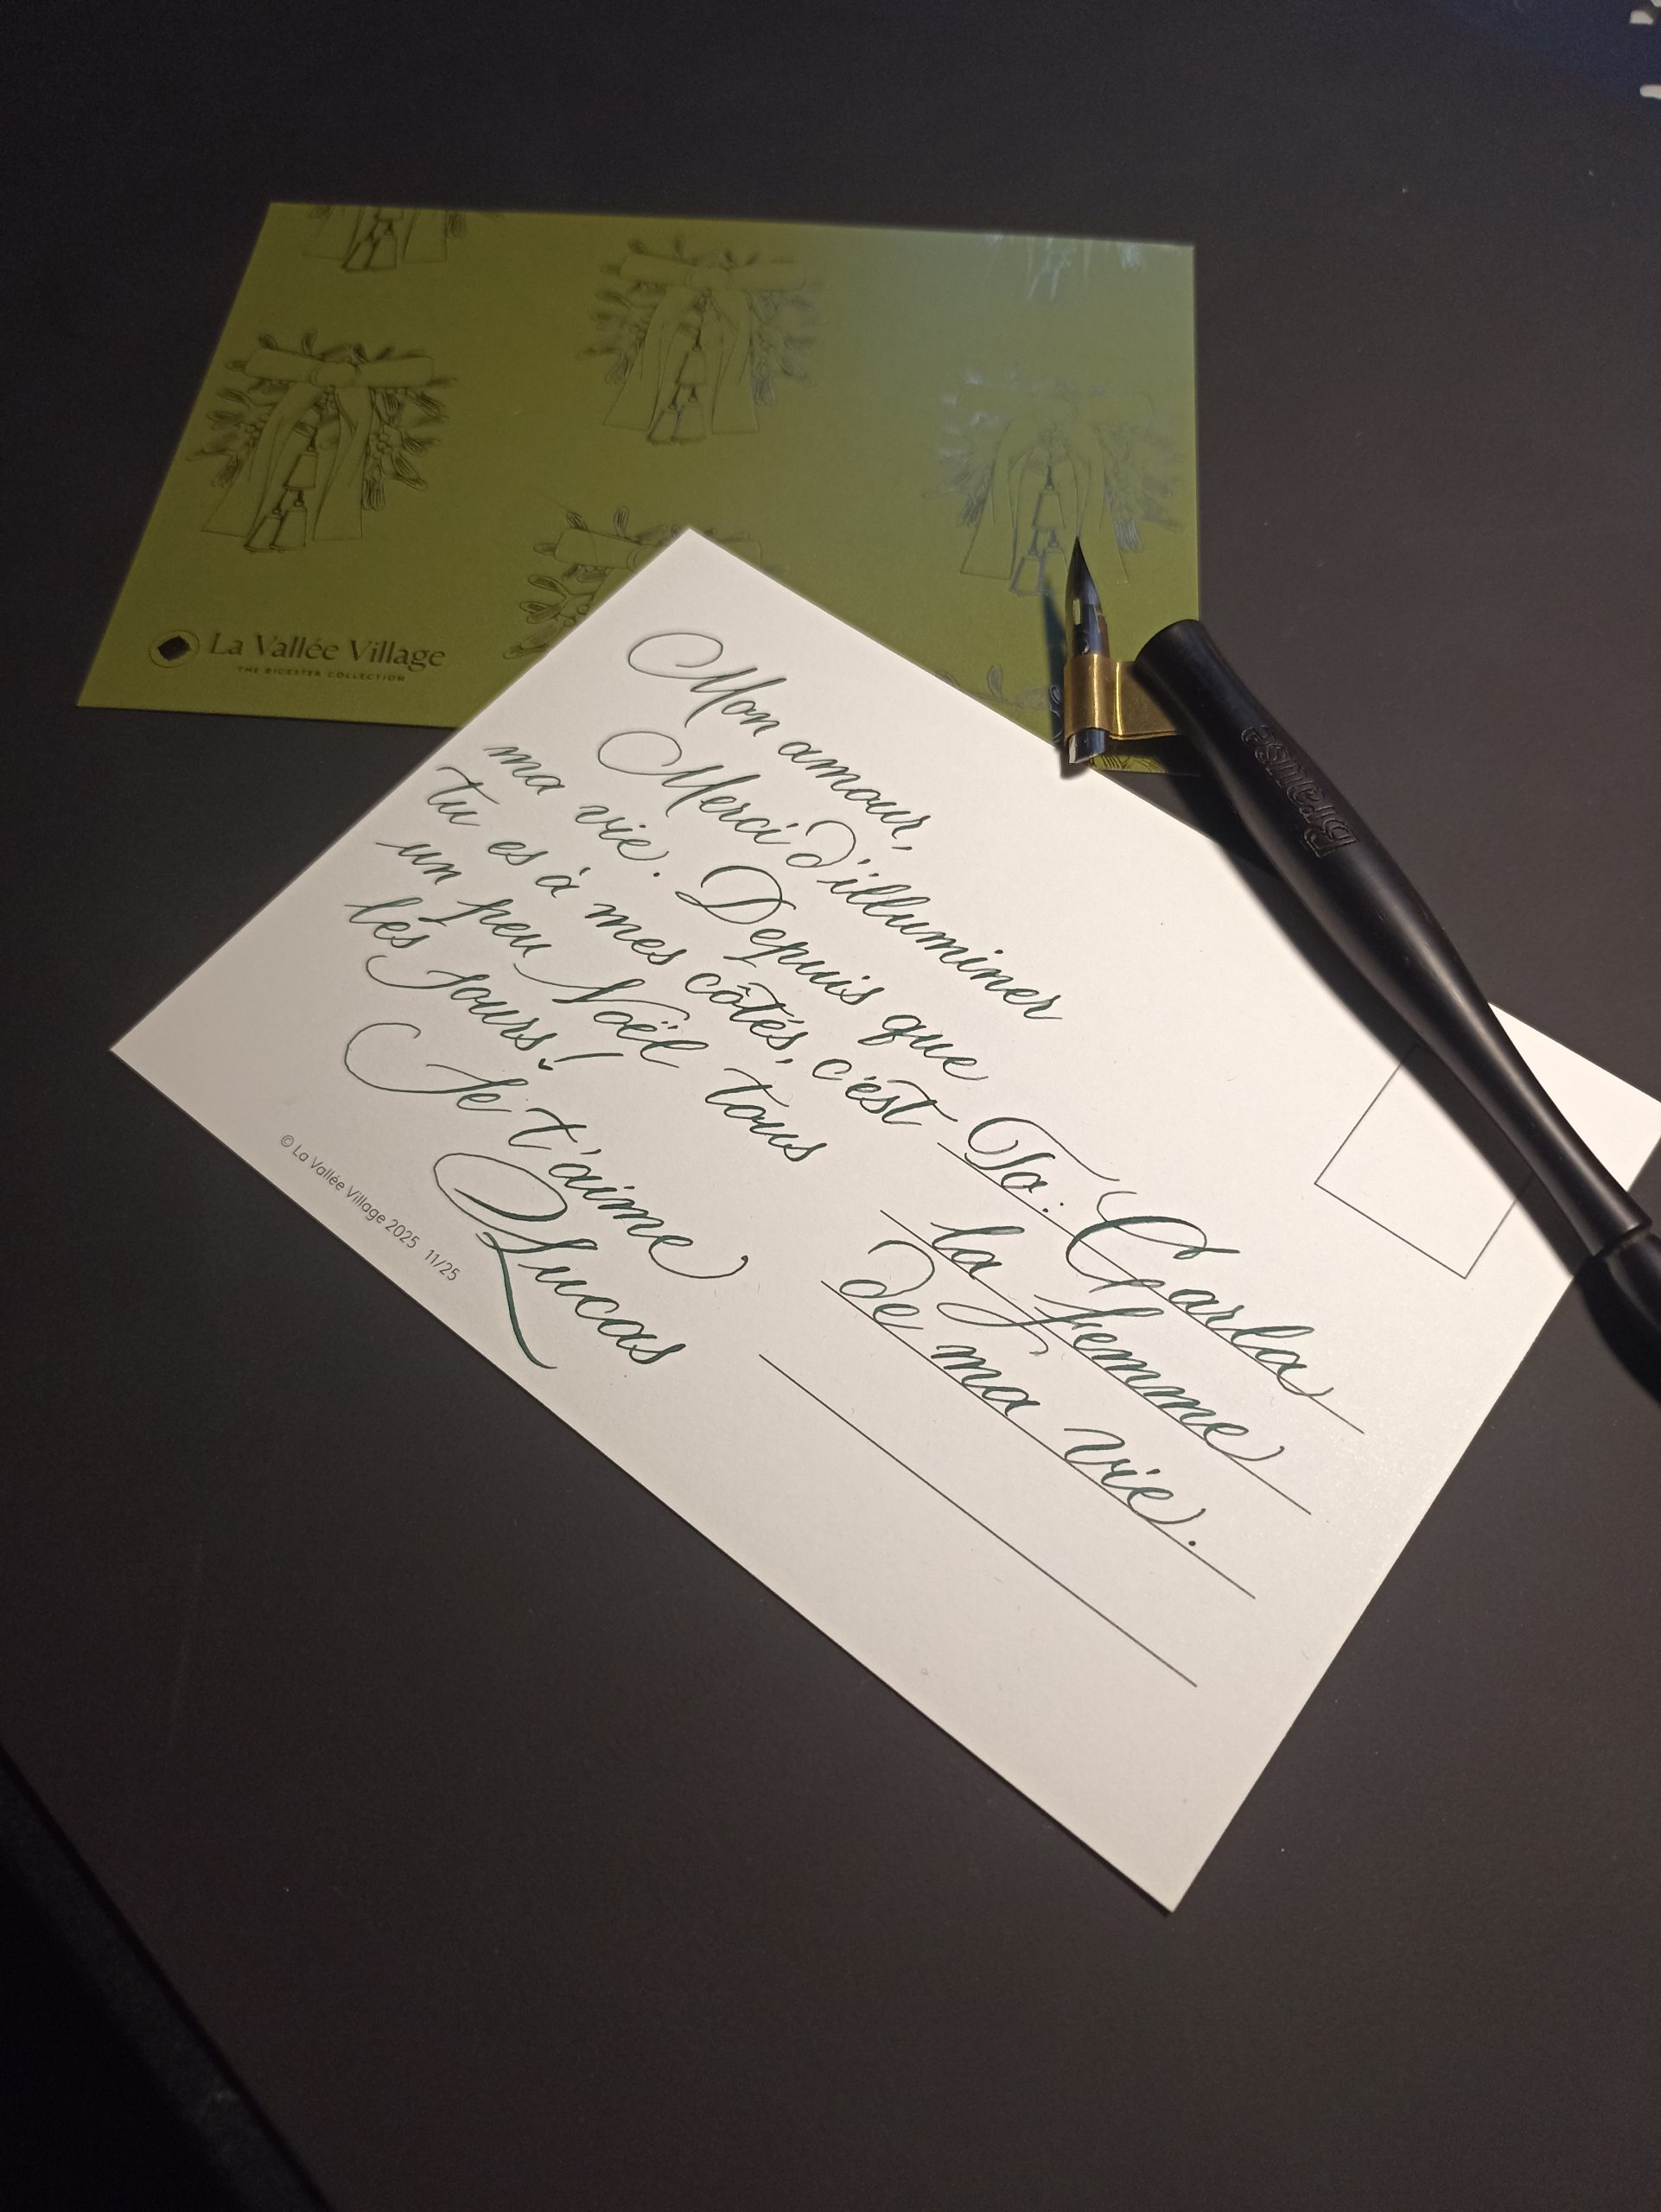 La Vallée Village
THE BICESTER COLLECTION
Mon amour,
Merci d'illuminer
ma vie. Depuis que
tu es à mes côtés, c'est
un peu Noël tous
les jours!
Je t'aime
Lucas
© La Vallée Village 2025 11/25
To: Carla
la femme
de ma vie.
Brause